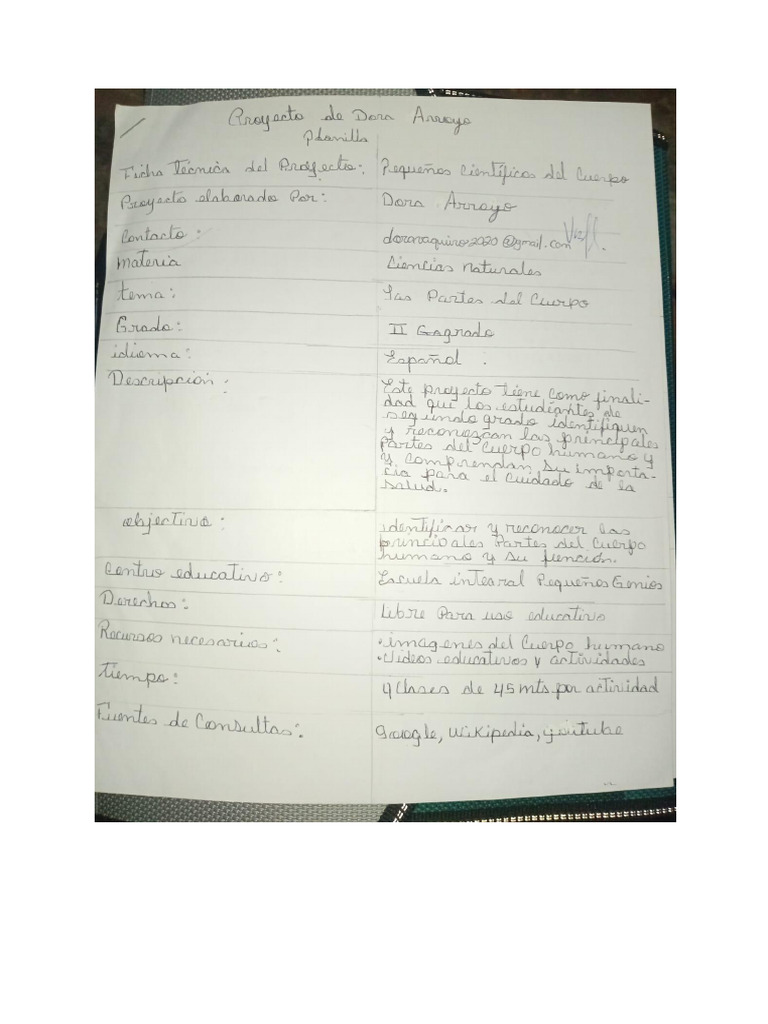 Proyecto de Dora Arroyo
Planilla
Ficha técnica del Proyecto: Pequeños científicos del Cuerpo
Proyecto elaborado Por: Dora Arroyo
Contacto: doravaquiro2020@gmail.com
Materia Ciencias naturales
tema: Las Partes del Cuerpo
Grado: II Gagrado
idioma: Español.
Descripción: Este proyecto tiene como finali-
dad que los estudiantes de
segundo grado identifiquen
y reconozcan las principales
partes del Cuerpo humano y
y comprendan su importa-
cia para el cuidado de la
salud.
objectivo: identificar y reconocer las
principales Partes del Cuerpo
humano y su función.
Centro educativo: Escuela integral Pequeños Genios
Derechos: Libre Para uso educativo
Recursos necesarios: •imagenes del Cuerpo humano
•Videos educativos y actividades
tiempo: 4 Clases de 45 mts por actividad
Fuentes de Consultas: Google, Wikipedia, youtube